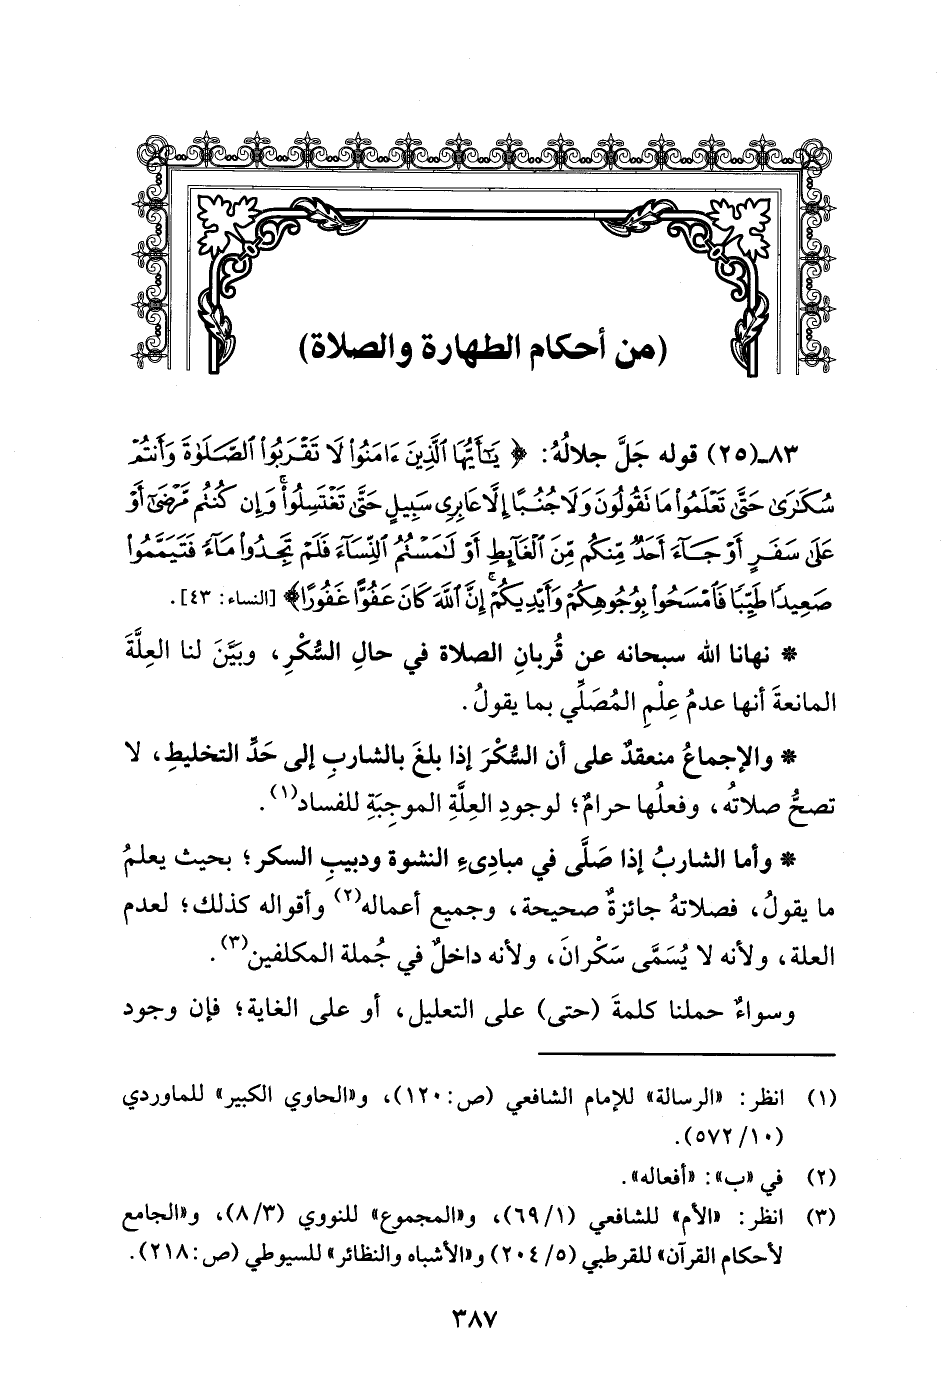 (من أحكام الطهارة والصلاة)
٨٣ـ(٢٥) قوله جَلَّ جلالُهُ: ﴿ يَٰٓأَيُّهَا ٱلَّذِينَ ءَامَنُوا۟ لَا تَقْرَبُوا۟ ٱلصَّلَوٰةَ وَأَنتُمْ
سُكَٰرَىٰ حَتَّىٰ تَعْلَمُوا۟ مَا تَقُولُونَ وَلَا جُنُبًا إِلَّا عَابِرِى سَبِيلٍ حَتَّىٰ تَغْتَسِلُوا۟ۚ وَإِن كُنتُم مَّرْضَىٰٓ أَوْ
عَلَىٰ سَفَرٍ أَوْ جَآءَ أَحَدٌ مِّنكُم مِّنَ ٱلْغَآئِطِ أَوْ لَٰمَسْتُمُ ٱلنِّسَآءَ فَلَمْ تَجِدُوا۟ مَآءً فَتَيَمَّمُوا۟
صَعِيدًا طَيِّبًا فَٱمْسَحُوا۟ بِوُجُوهِكُمْ وَأَيْدِيكُمْۗ إِنَّ ٱللَّهَ كَانَ عَفُوًّا غَفُورًا﴾ [النساء: ٤٣].
* نهانا الله سبحانه عن قُربانِ الصلاة في حالِ السُّكْرِ، وبَيَّنَ لنا العِلَّةَ
المانعةَ أنها عدمُ عِلْمِ المُصَلِّي بما يقولُ.
* والإجماعُ منعقدٌ على أن السُّكْرَ إذا بلغَ بالشاربِ إلى حَدِّ التخليطِ، لا
تصحُّ صلاتُه، وفعلُها حرامٌ؛ لوجودِ العِلَّةِ الموجِبَةِ للفساد(١).
* وأما الشاربُ إذا صَلَّى في مبادىءِ النشوة ودبيبِ السكر؛ بحيث يعلمُ
ما يقولُ، فصلاتهُ جائزةٌ صحيحة، وجميع أعماله(٢) وأقواله كذلك؛ لعدم
العلة، ولأنه لا يُسَمَّى سَكْرانَ، ولأنه داخلٌ في جُملة المكلفين(٣).
وسواءٌ حملنا كلمةَ (حتى) على التعليل، أو على الغاية؛ فإن وجود
(١) انظر: «الرسالة» للإمام الشافعي (ص: ١٢٠)، و«الحاوي الكبير» للماوردي
(١٠/ ٥٧٢).
(٢) في «ب»: «أفعاله».
(٣) انظر: «الأم» للشافعي (١/ ٦٩)، و«المجموع» للنووي (٣/ ٨)، و«الجامع
لأحكام القرآن» للقرطبي (٥/ ٢٠٤) و«الأشباه والنظائر» للسيوطي (ص: ٢١٨).
٣٨٧